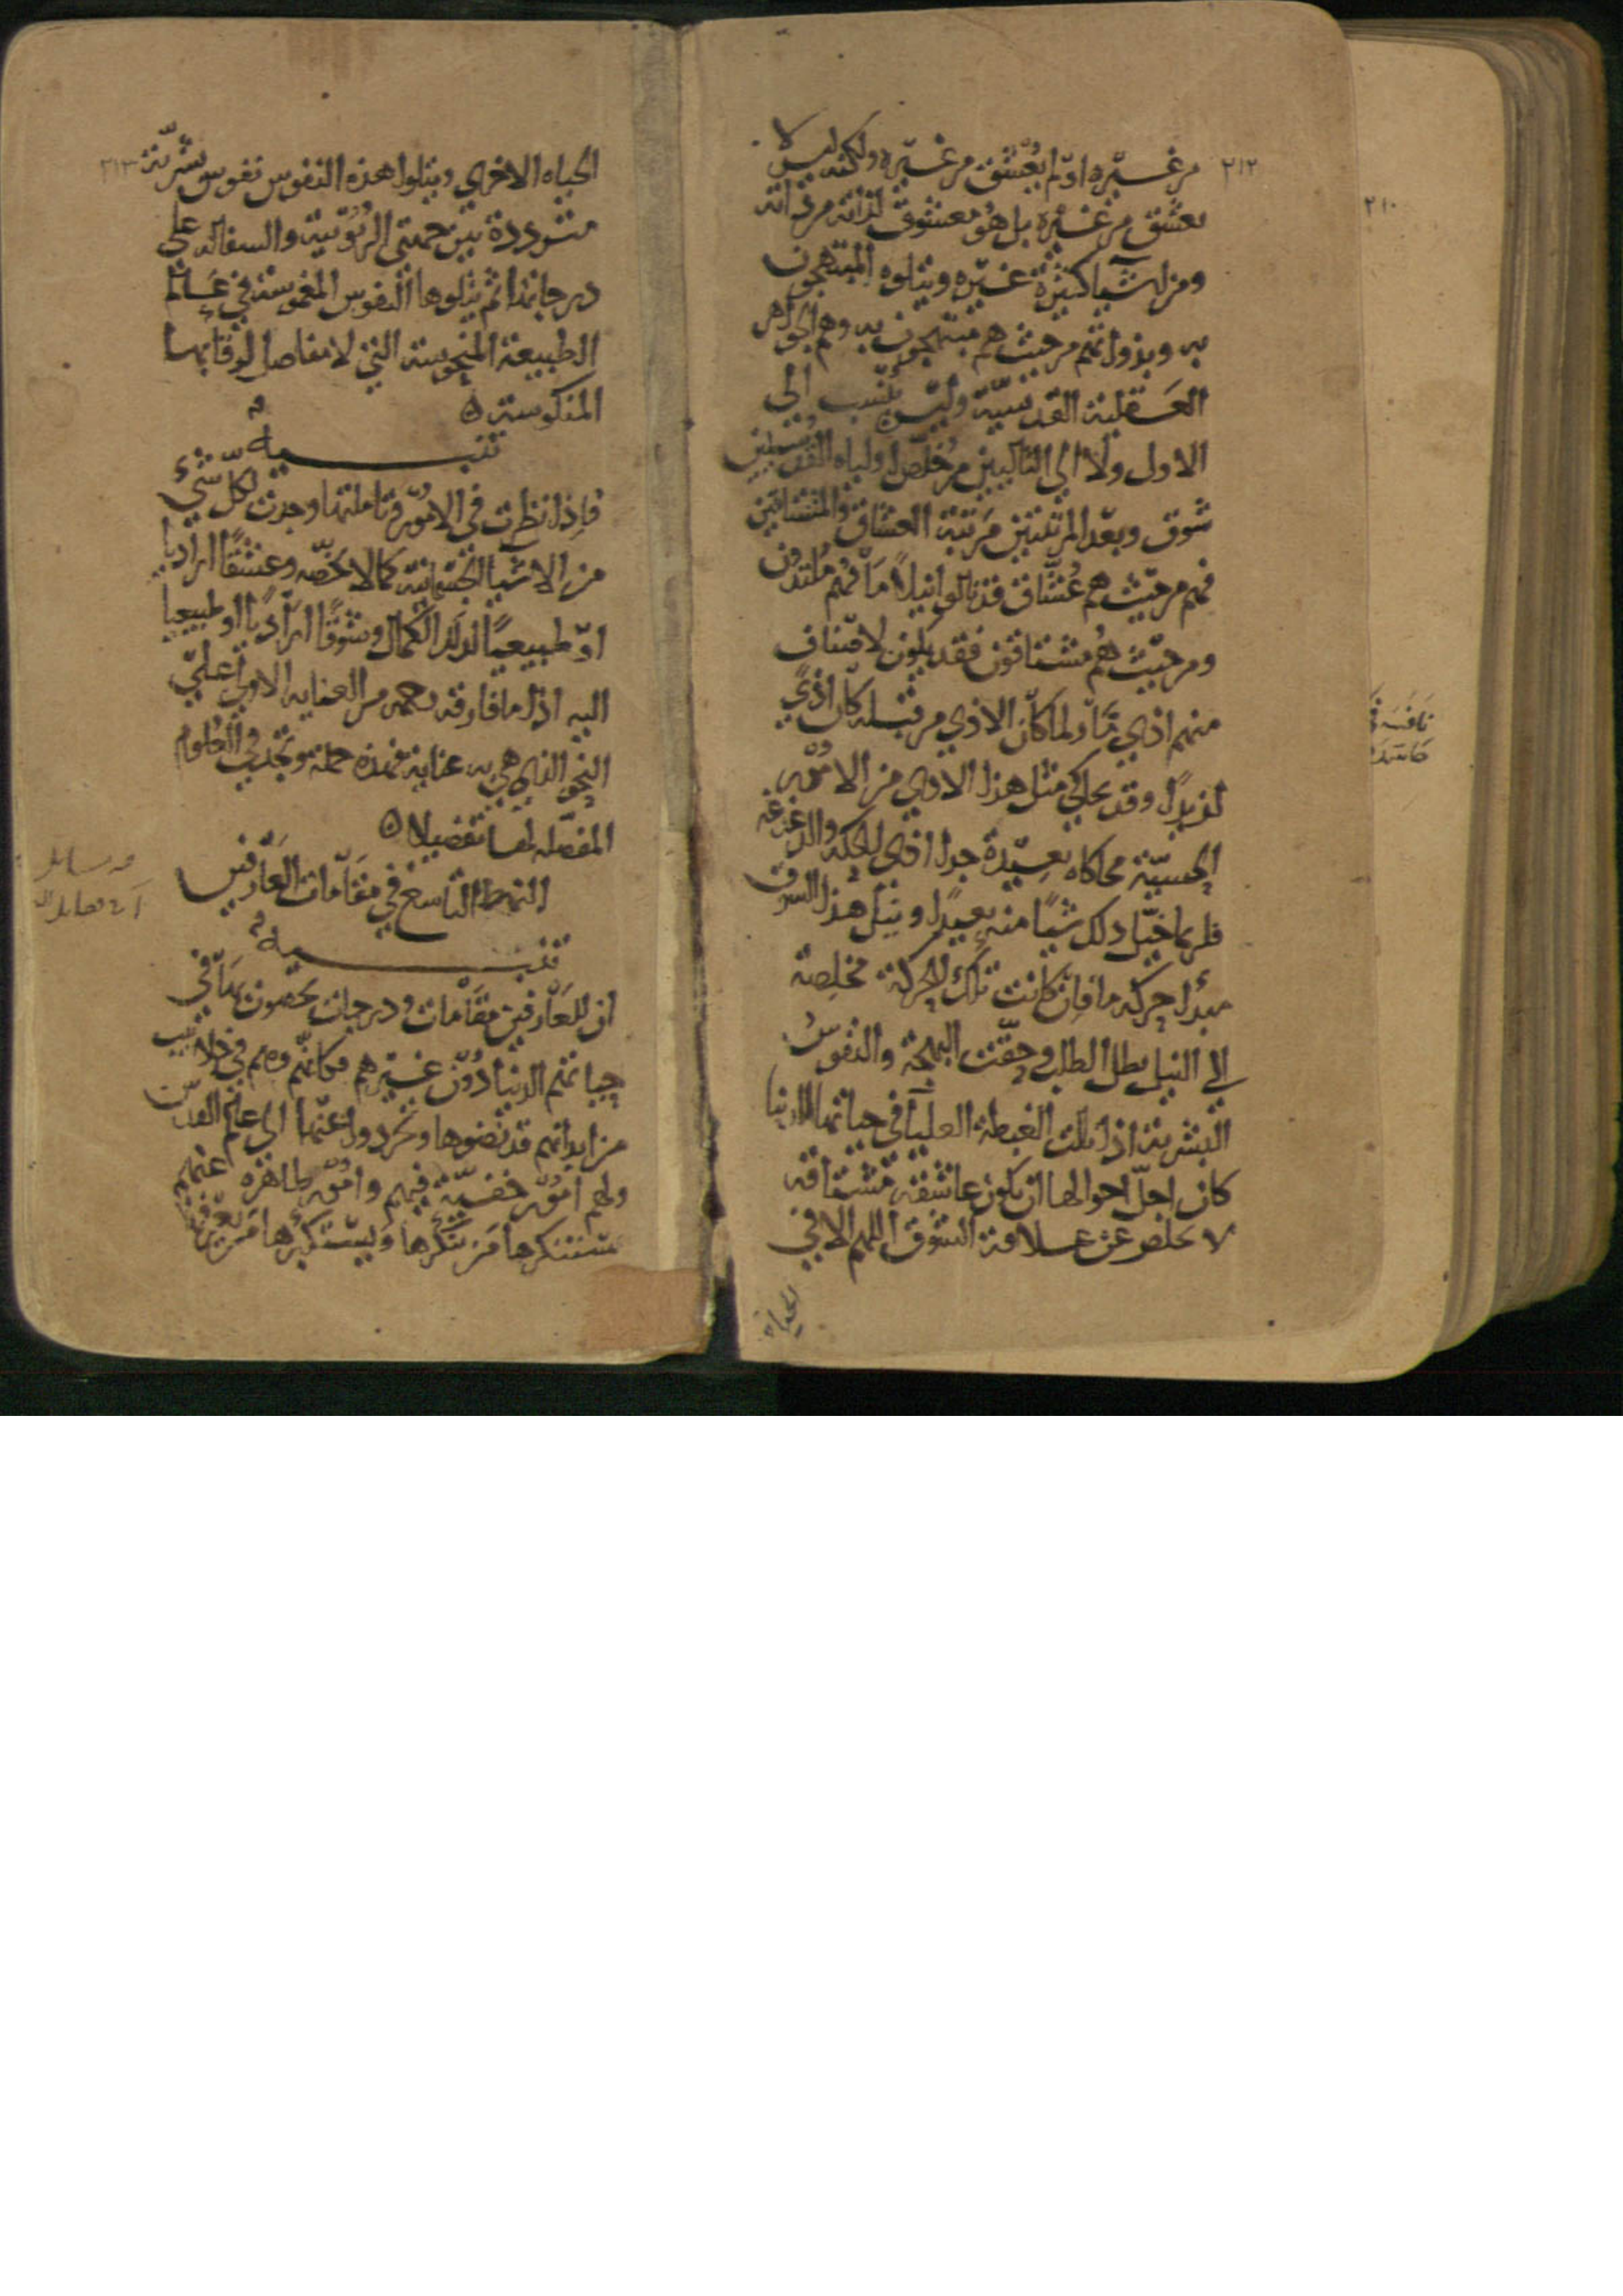 ٢١٢
من غيره او لم يعشق من غيره ولكنه ليس لا
يعشق من غيره بل هو معشوق لذاته من ذاته
ومن اشيا كثيرة غيره ويتلوه المبتهجون
به وبذواتهم من حيث هم مبتهجون به وهم الجواهر
العقلية القدسية وليس ينسب الى
الاول ولا الى التاليين من خلص اولياه القدسيين
شوق وبعد المرتبتين مرتبة العشاق والمشتاقين
فهم من حيث هم عشاق قد نالوا نيلا ما فهم ملتذون
ومن حيث هم مشتاقون فقد يكون لاصناف
منهم اذى ما ولما كان الاذى من قبله كان اذى
لذيذا وقد يحاكي مثل هذا الاذى من الامور
الحسية محاكاه بعيدة جدا اذى الحكة والدغدغه
فلربما خيل ذلك شيا منه بعيدا ومثل هذا الشوق
مبدا حركه ما فان كانت تلك الحركة مخلصة
الى النيل بطل الطلب وحقت البهجة والنفوس
البشرية اذا نالت الغبطة العليا في حياتها الدنيا
كان اجل احوالها ان تكون عاشقة مشتاقة
لا تخلص عن علاقة الشوق اللهم الا في
الحياه
٢١٣
الحياه الاخرى ويتلوا هذه النفوس نفوس بشرية
مترددة بين جهتي الربوبية والسفاله على
درجاتها ثم يتلوها النفوس المغموسة في عالم
الطبيعة المنحوسة التي لا مفاصل لرقابها
المنكوسة ٥
تنبيه
فاذا نظرت في الامور وتاملتها وجدت لكل شيء
من الاشيا الجسمانية كمالا يخصه وعشقا اراديا
او طبيعيا لذلك الكمال وشوقا اراديا او طبيعيا
اليه اذا ما فارقه رحمه من العنايه الاولى على
النحو الذي هي به عناية فهذه جملة وتجد في العلوم
المفصله لها تفصيلا ٥
النمط التاسع في مقامات العارفين
تنبيه
ان للعارفين مقامات ودرجات يخصون بها في
حياتهم الدنيا دون غيرهم فكانهم وهم في جلابيب
من ابدانهم قد نضوها وتجردوا عنها الى عالم القدس
ولهم امور خفية فيهم وامور ظاهره عنهم
يستنكرها من ينكرها ويستكبرها من يعرفها
٢١٠